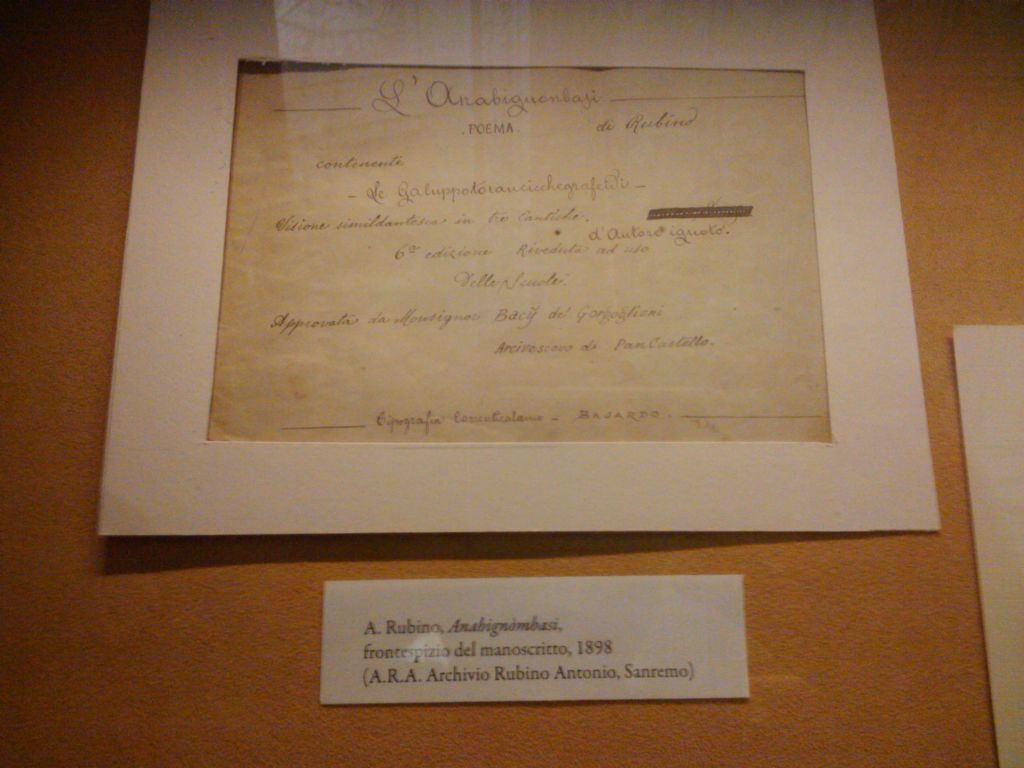 L' Anabignonbasi
.POEMA. di Rubino
contenente
- Le
Visione simildantesca in tre Cantiche.
d'Autore ignoto.
6ª edizione Riveduta ad uso
Delle Scuole.
Approvata da Monsignor Bacij de'
Arcivescovo di PanCastello.
Tipografia - BAJARDO.
A. Rubino, Anabignòmbasi,
frontespizio del manoscritto, 1898
(A.R.A. Archivio Rubino Antonio, Sanremo)